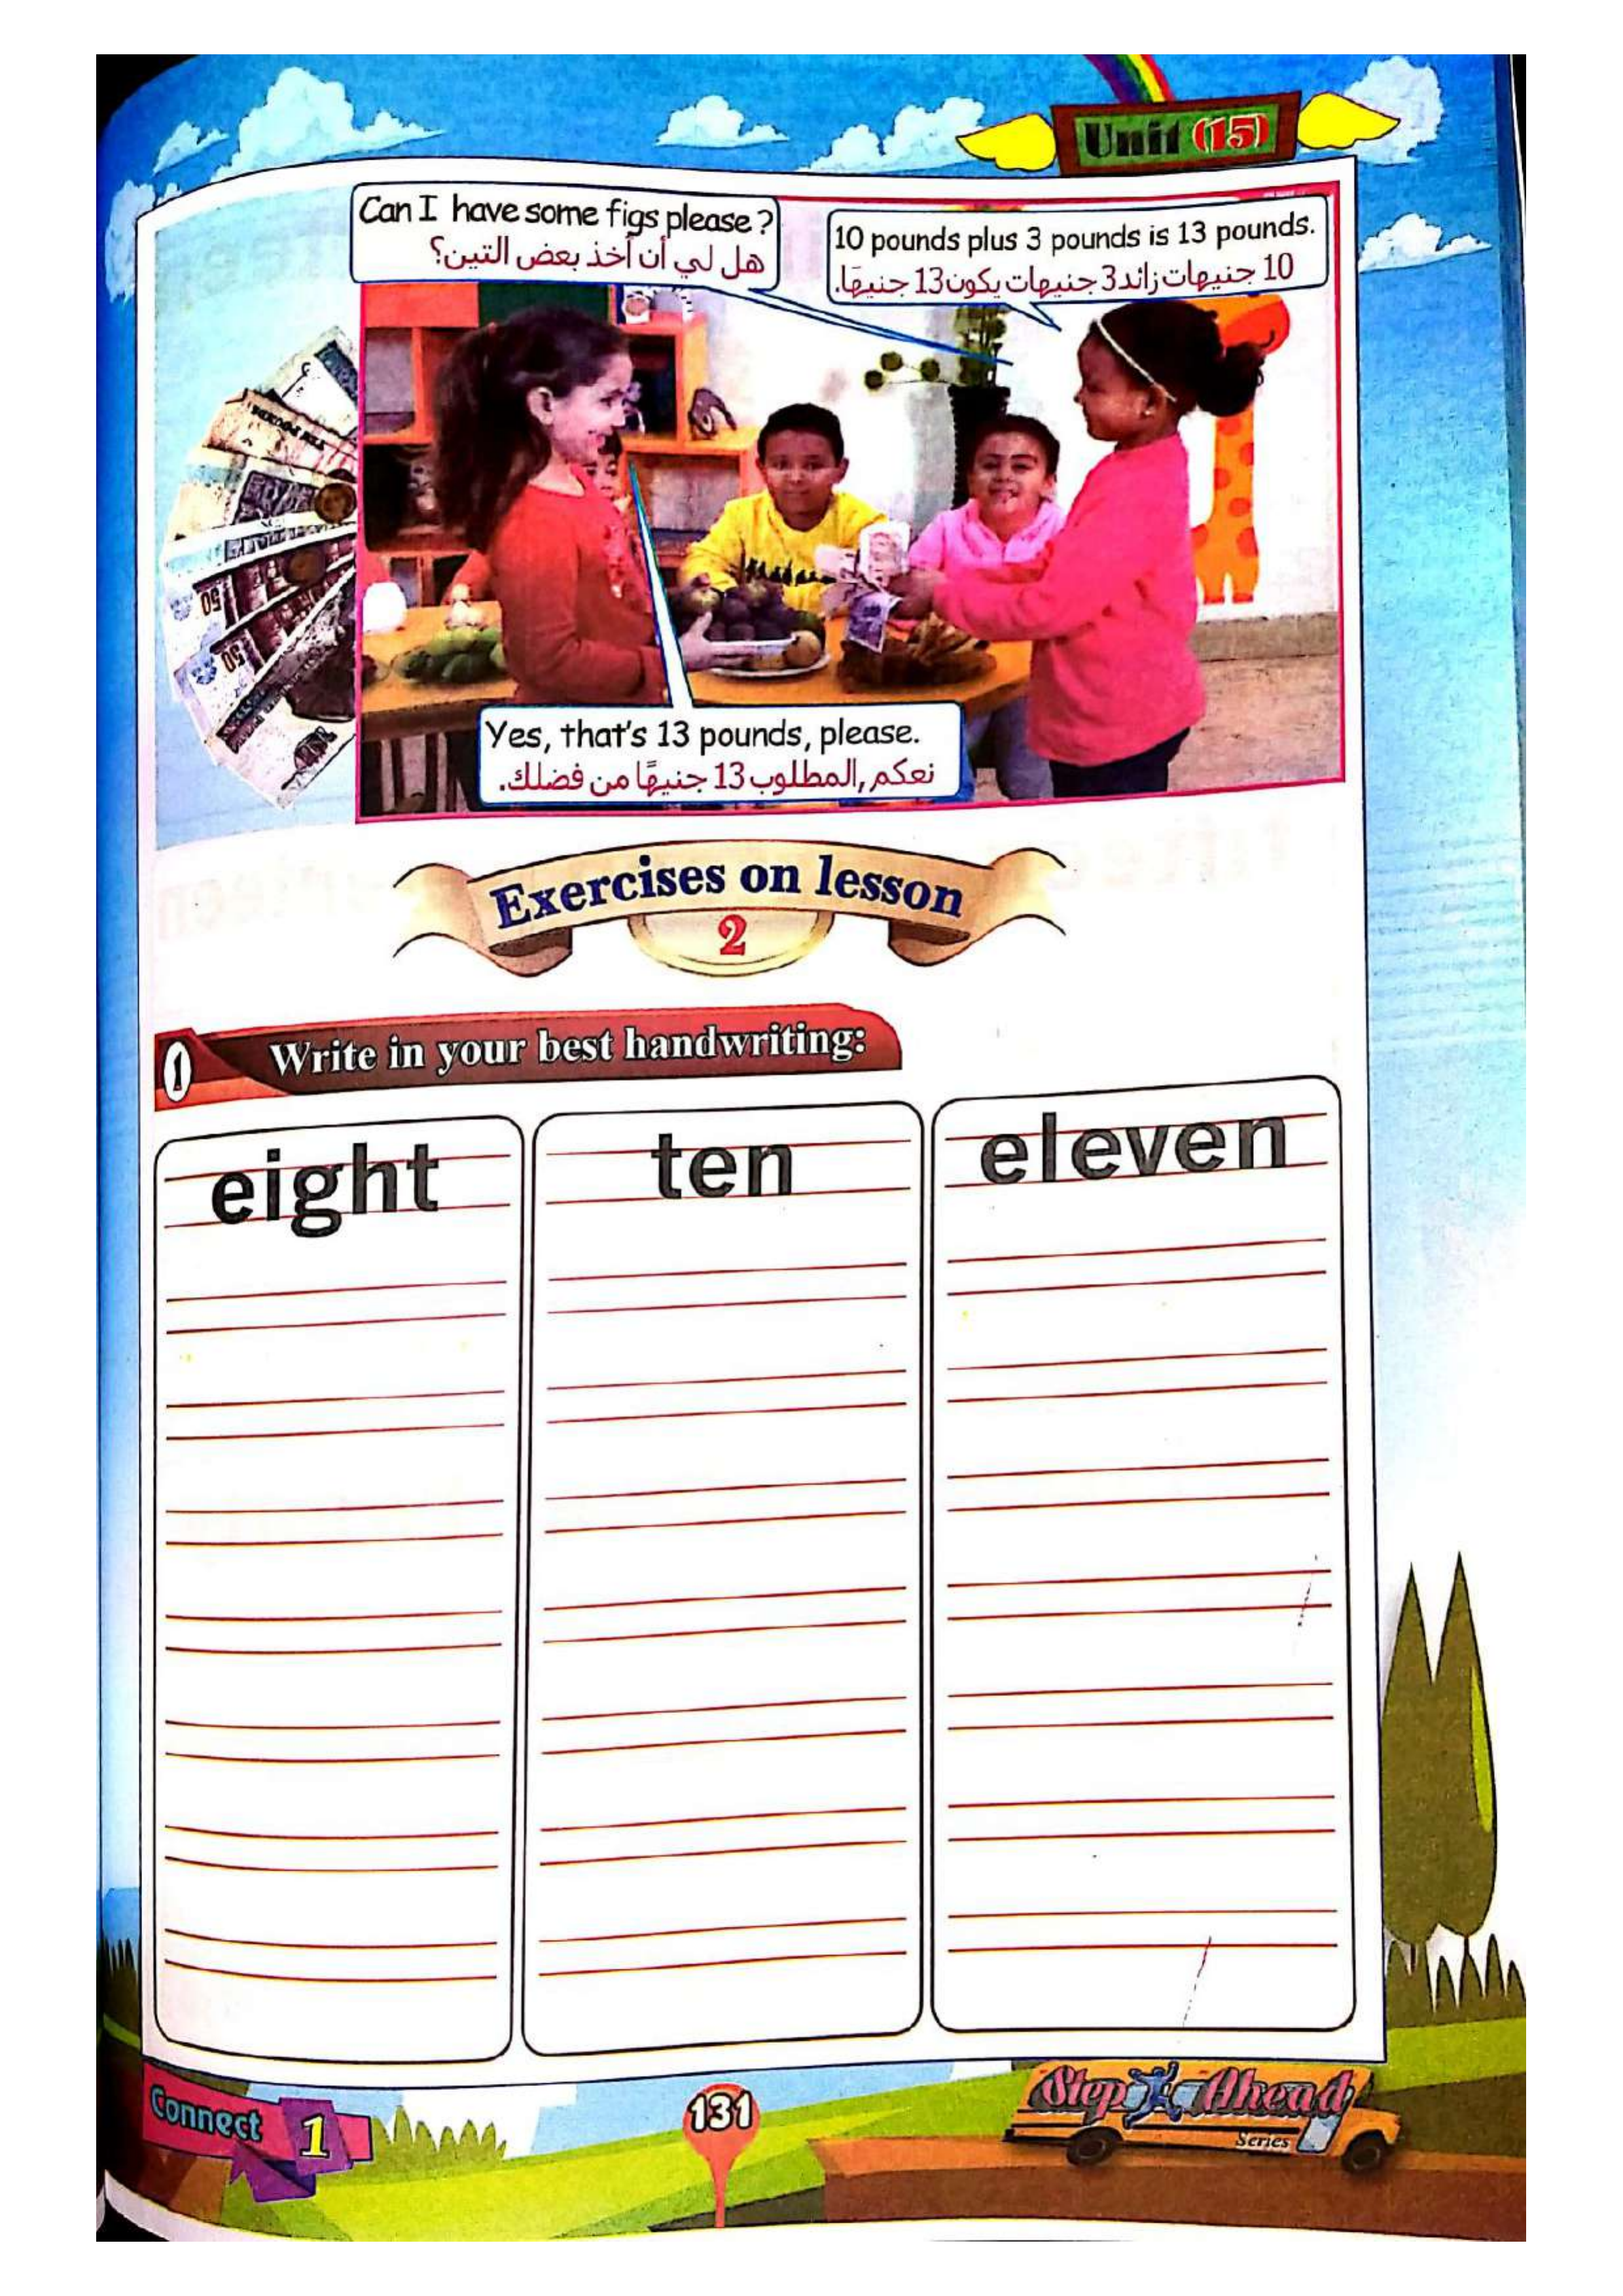 Unit (15)
Can I have some figs please?
هل لي أن أخذ بعض التين؟
10 pounds plus 3 pounds is 13 pounds.
10 جنيهات زائد 3 جنيهات يكون 13 جنيهًا.
Yes, that's 13 pounds, please.
نعكم, المطلوب 13 جنيهًا من فضلك.
Exercises on lesson
2
1 Write in your best handwriting:
eight
ten
eleven
Connect 1
131
Step Ahead
Series